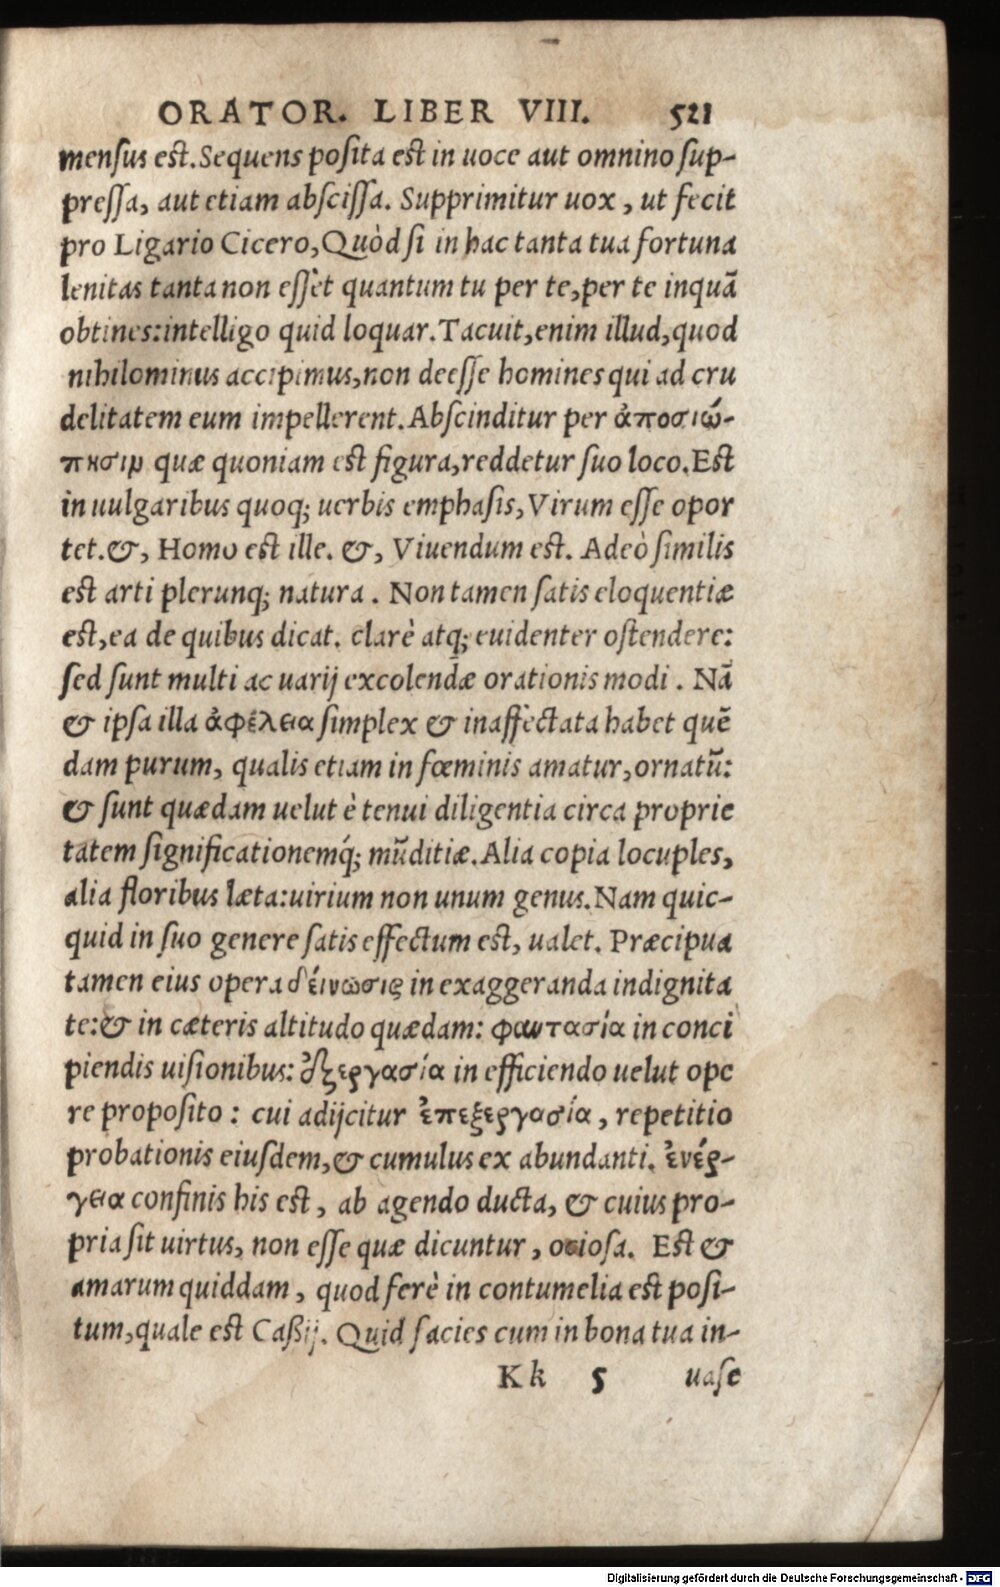 ORATOR. LIBER VIII. 521
mensus est. Sequens posita est in uoce aut omnino sup-
pressa, aut etiam abscissa. Supprimitur uox, ut fecit
pro Ligario Cicero, Quòd si in hac tanta tua fortuna
lenitas tanta non essèt quantum tu per te, per te inquã
obtines: intelligo quid loquar. Tacuit, enim illud, quod
nihilominus accipimus, non deesse homines qui ad cru
delitatem eum impellerent. Abscinditur per ἀποσιώ-
πησιν quæ quoniam est figura, reddetur suo loco. Est
in uulgaribus quoq; uerbis emphasis, Virum esse opor
tet. &, Homo est ille. &, Viuendum est. Adeò similis
est arti plerunq; natura. Non tamen satis eloquentiæ
est, ea de quibus dicat, clarè atq; euidenter ostendere:
sed sunt multi ac uarij excolendæ orationis modi. Nã
& ipsa illa ἀφέλεια simplex & inaffèctata habet quẽ
dam purum, qualis etiam in fœminis amatur, ornatũ:
& sunt quædam uelut è tenui diligentia circa proprie
tatem significationemq́; mũditiæ. Alia copia locuples,
alia floribus læta: uirium non unum genus. Nam quic-
quid in suo genere satis effectum est, ualet. Præcipua
tamen eius opera δείνωσις in exaggeranda indignita
te: & in cæteris altitudo quædam: φαντασία in conci
piendis uisionibus: ἐξεργασία in efficiendo uelut ope
re proposito: cui adijcitur ἐπεξεργασία, repetitio
probationis eiusdem, & cumulus ex abundanti. ἐνέρ-
γεια confinis his est, ab agendo ducta, & cuius pro-
pria sit uirtus, non esse quæ dicuntur, ociosa. Est &
amarum quiddam, quod ferè in contumelia est posi-
tum, quale est Caßij. Quid facies cum in bona tua in-
Kk 5 uase
Digitalisierung gefördert durch die Deutsche Forschungsgemeinschaft - DFG